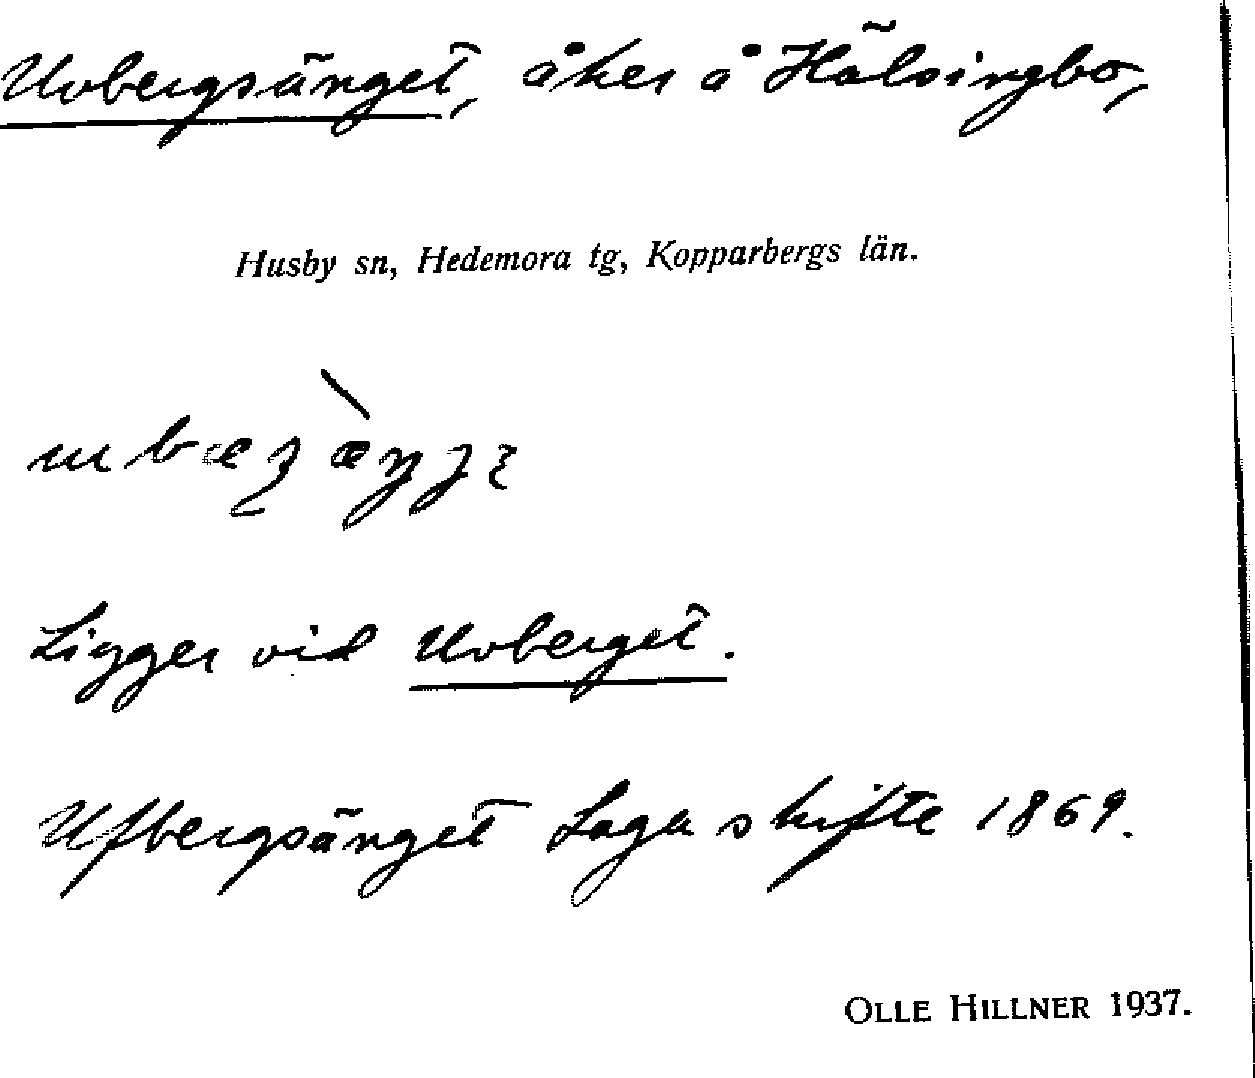 Uvbergsänget, åker å Hälsingbo,
Husby sn, Hedemora tg, Kopparbergs län.
Ligger vid Uvberget.
Ufbergsänget Laga skifte 1869.
OLLE HILLNER 1937.